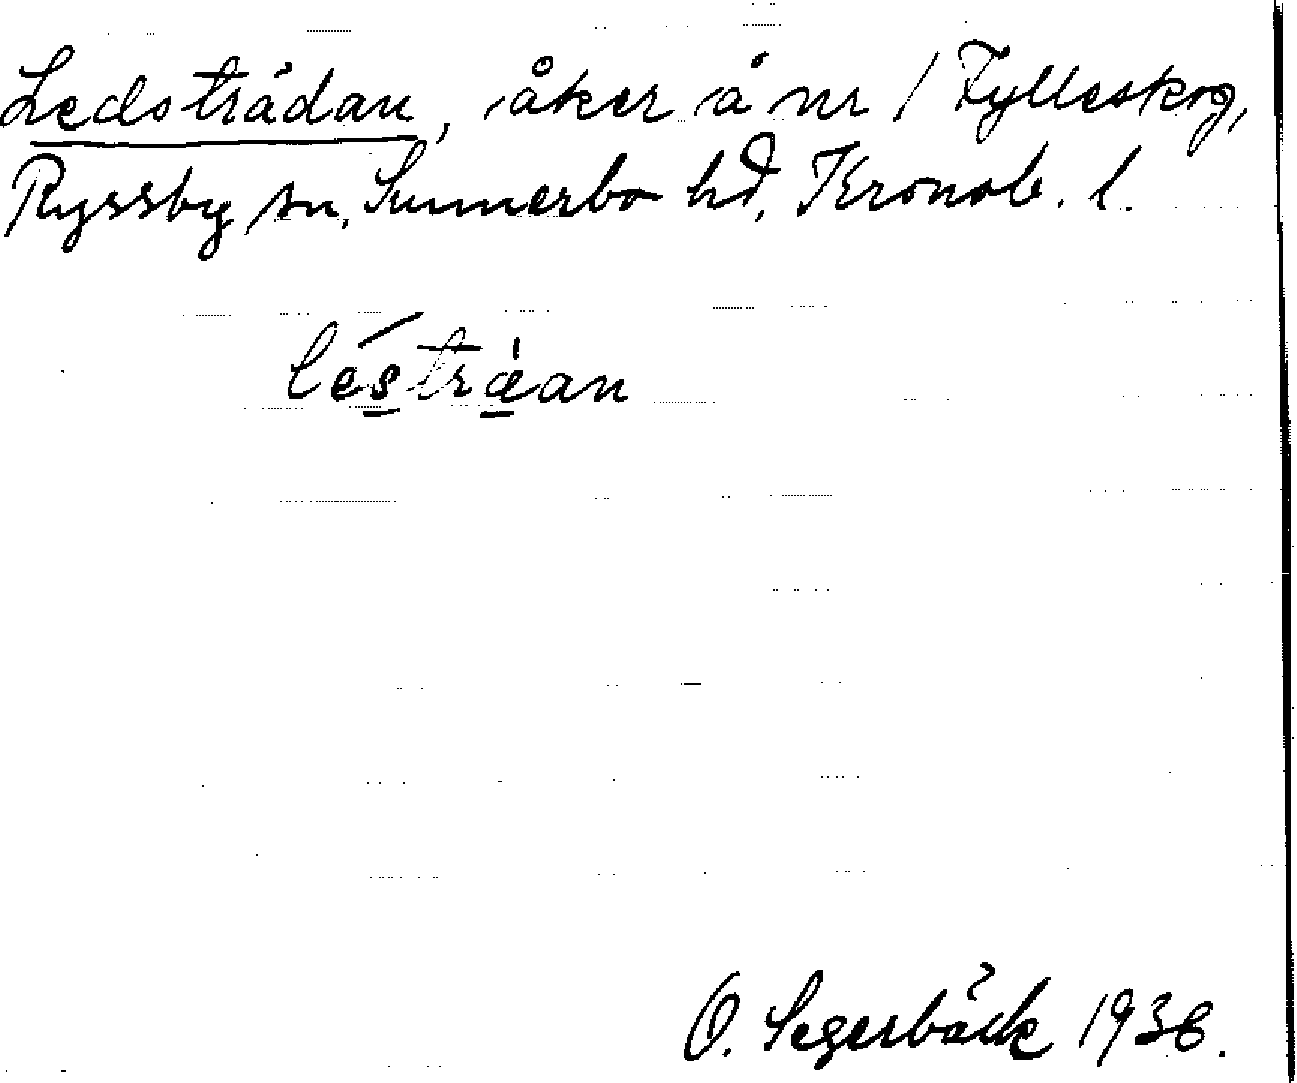 Ledsträdan, åker å nr 1 Fylleskog,
Ryssby sn, Sunnerbo hd, Kronob. l.
lésträ̀an
O. Segerbäck 1936.